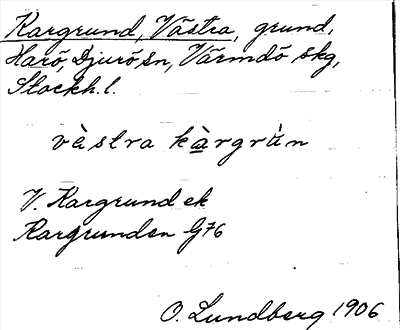 Kargrund, Västra, grund,
Harö, Djurö sn, Värmdö skg,
Stockh. l.
vèstra kàrgrùn
V. Kargrund ek
Kargrunden G76
O. Lundberg 1906